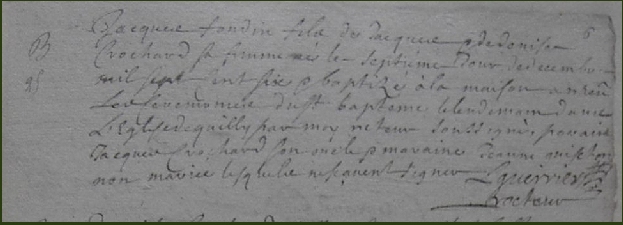 6
Jacques tondin fils de Jacques & de denise
B
Crochard sa femme nés le septième Jour de decembre
mil sept cent six & baptizé à la maison a receu
Les cérémonies du st baptéme le lendemain dans
L'Eglise de quilly par moy recteur soussigné, parain
Jacques Crochard son oncle & maraine Jeanne
non mariée lesquels ne sçavent signer Lguerrier
Recteur